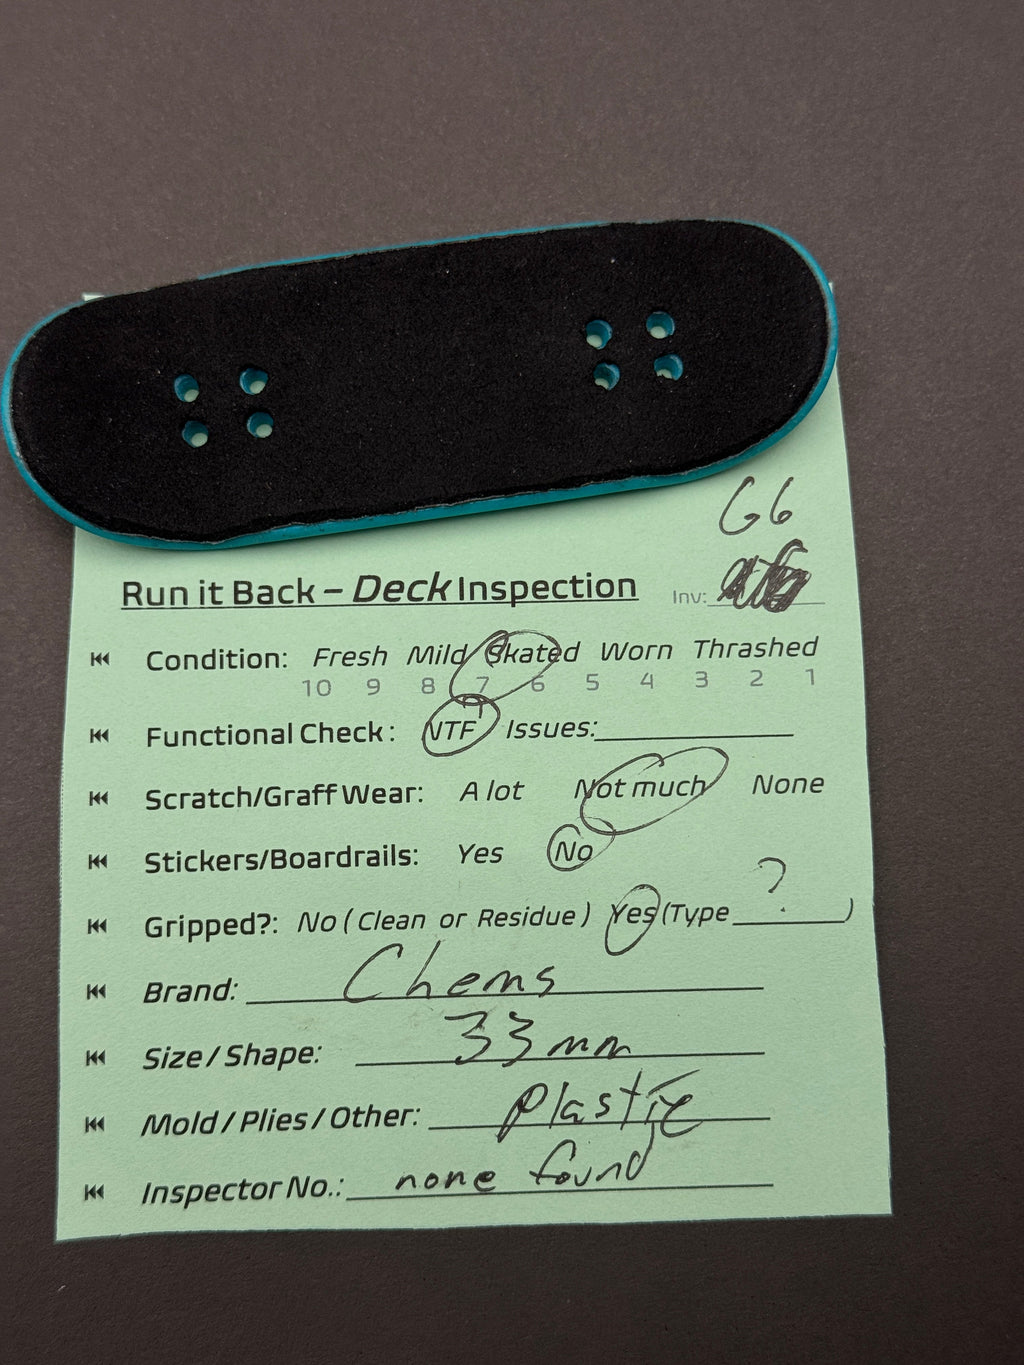 G6
Run it Back – Deck Inspection Inv:
Condition: Fresh Mild Skated Worn Thrashed
10 9 8 7 6 5 4 3 2 1
Functional Check: NTF Issues:
Scratch/Graff Wear: A lot Not much None
Stickers/Boardrails: Yes No
Gripped?: No (Clean or Residue) Yes (Type ? )
Brand: Chems
Size / Shape: 33mm
Mold / Plies / Other: plastic
Inspector No.: none found